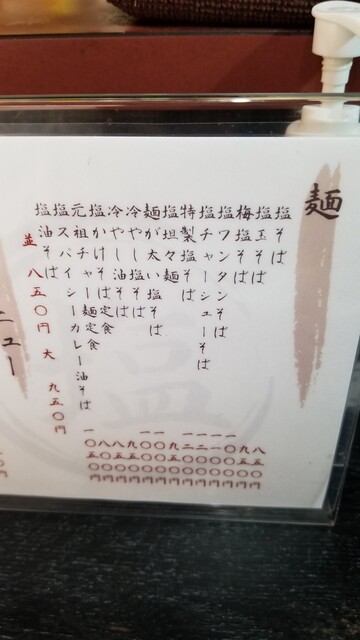 麺
塩そば 八五〇円
塩玉そば 九五〇円
梅塩そば 一〇〇〇円
塩ワンタンそば 一一〇〇円
塩チャーシューそば 一二〇〇円
特製塩そば 一二〇〇円
塩坦々麺 九五〇円
麺が太い塩そば 一〇〇〇円
冷やし塩そば 一〇〇〇円
冷やし油そば 九五〇円
塩かけそば定食 八五〇円
元祖チャー麺定食
塩スパイシーカレー油そば 一〇五〇円
塩油そば
並 八五〇円 大 九五〇円
ニュー